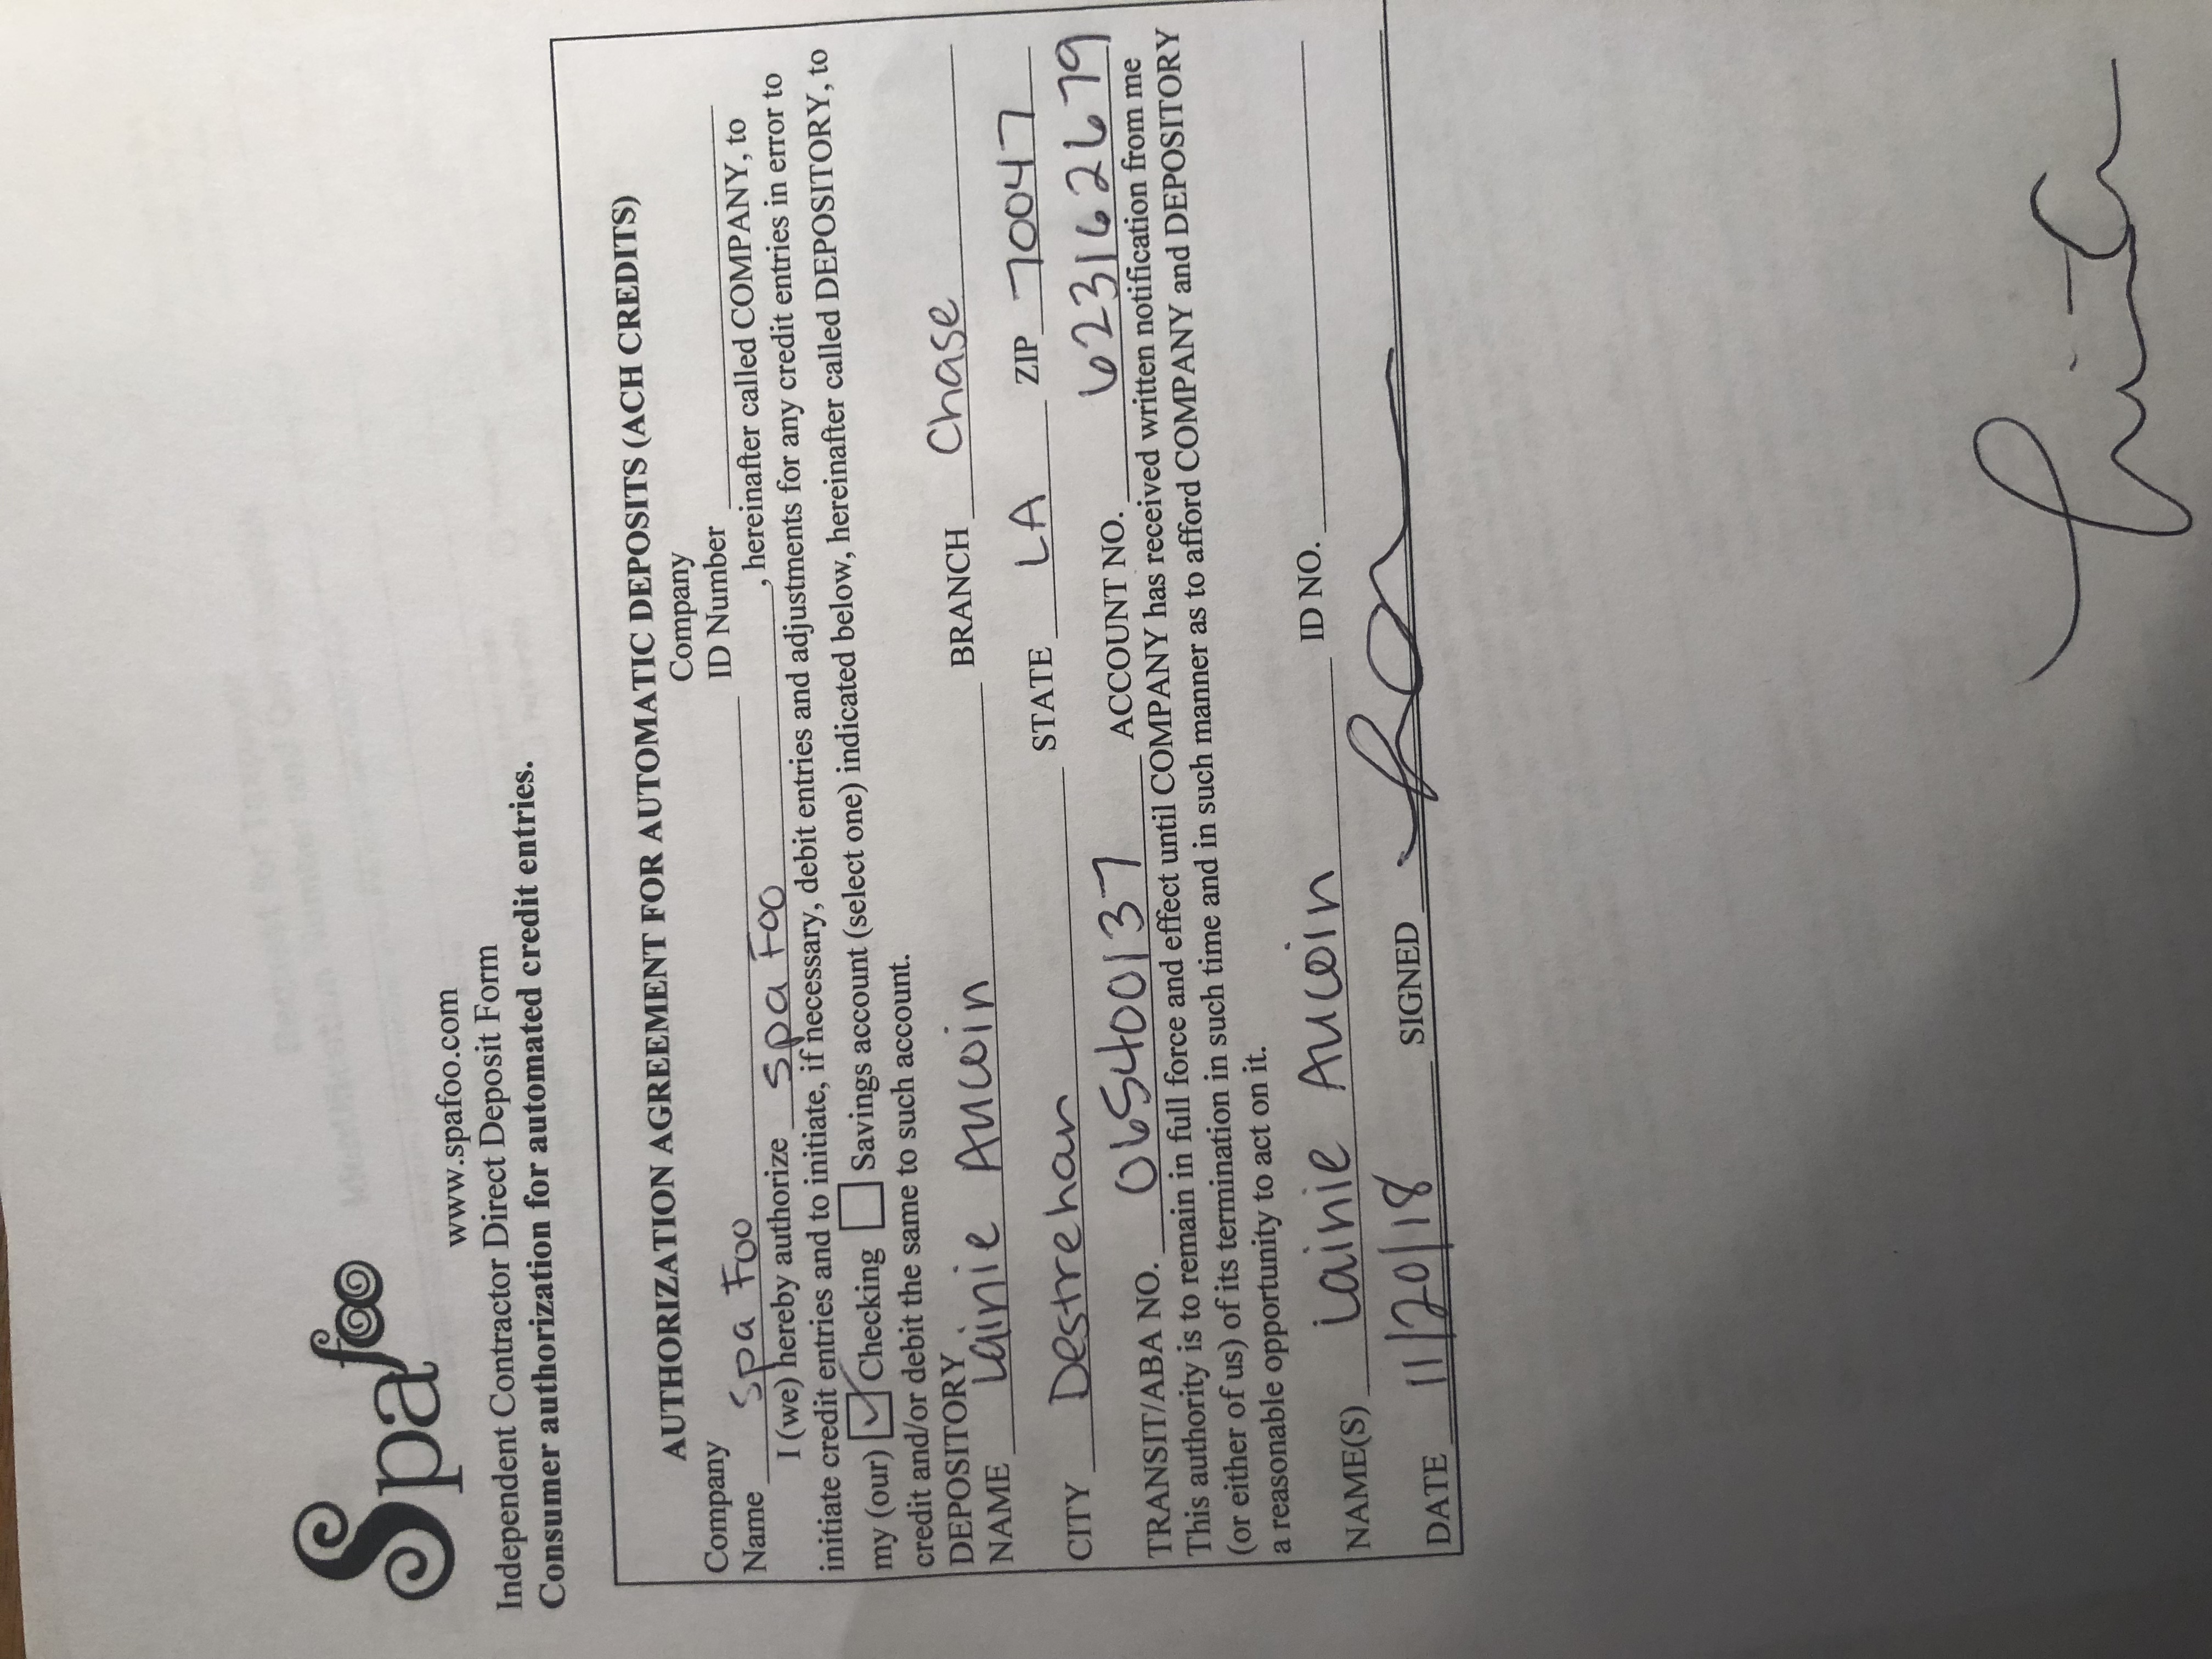 Spa foo
www.spafoo.com
Independent Contractor Direct Deposit Form
Consumer authorization for automated credit entries.
AUTHORIZATION AGREEMENT FOR AUTOMATIC DEPOSITS (ACH CREDITS)
Company Name Spa Foo Company ID Number
I (we) hereby authorize Spa Foo , hereinafter called COMPANY, to
initiate credit entries and to initiate, if necessary, debit entries and adjustments for any credit entries in error to
my (our) Checking Savings account (select one) indicated below, hereinafter called DEPOSITORY, to
credit and/or debit the same to such account.
DEPOSITORY
NAME Lainie Aucoin BRANCH Chase
CITY Destrehan STATE LA ZIP 70047
TRANSIT/ABA NO. 065400137 ACCOUNT NO. 623162679
This authority is to remain in full force and effect until COMPANY has received written notification from me
(or either of us) of its termination in such time and in such manner as to afford COMPANY and DEPOSITORY
a reasonable opportunity to act on it.
NAME(S) Lainie Aucoin ID NO.
DATE 11/20/18 SIGNED